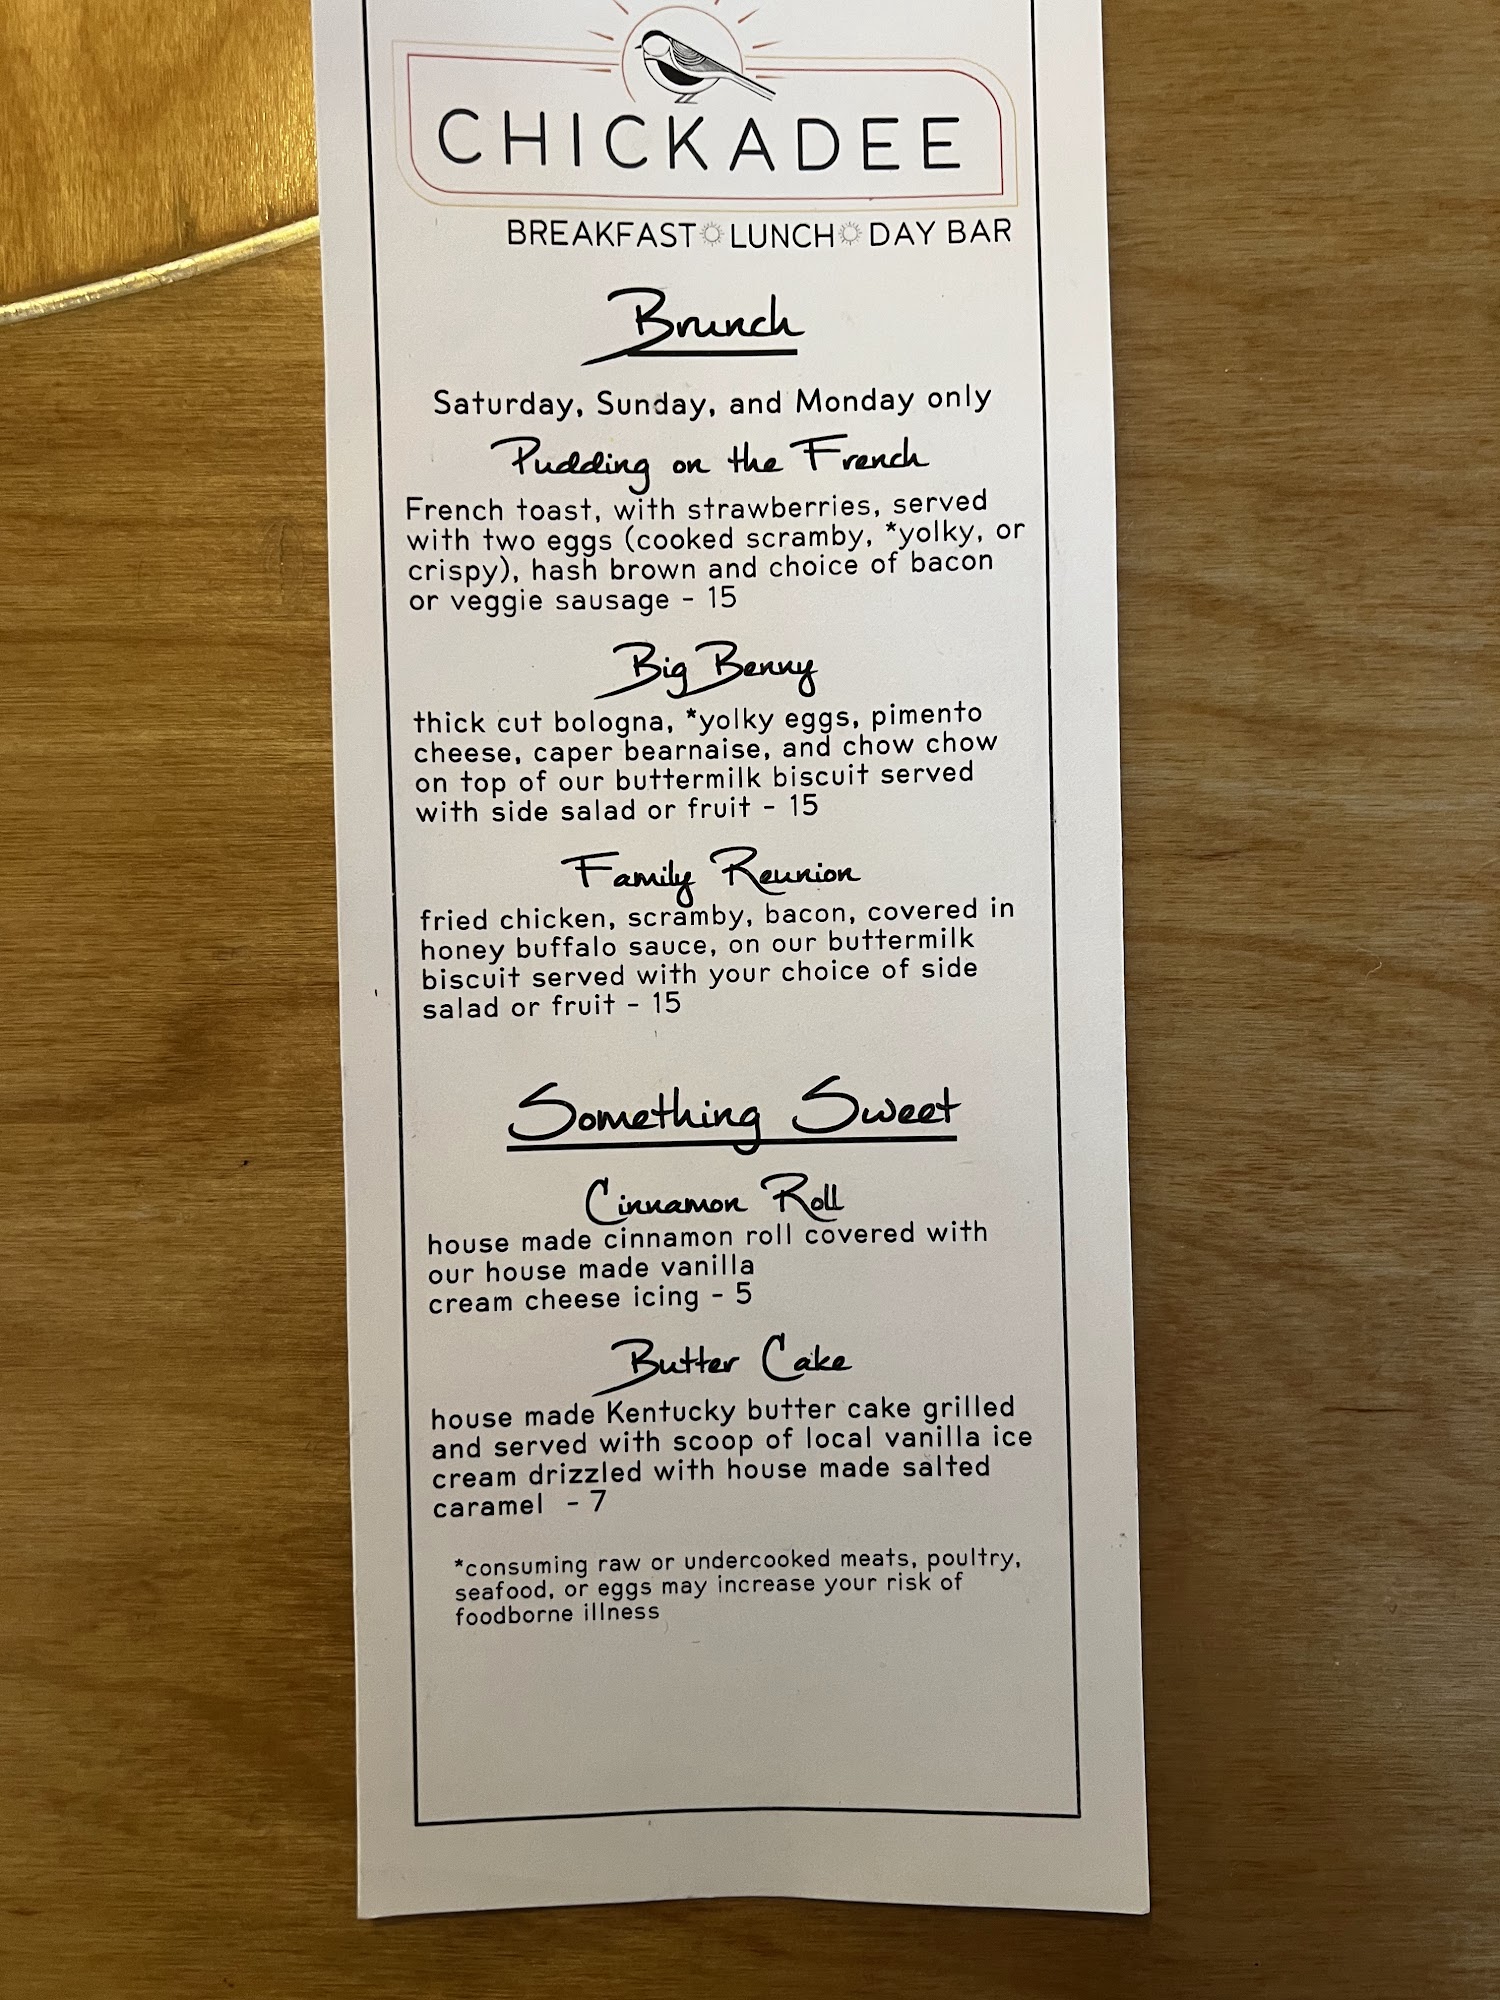 CHICKADEE
BREAKFAST LUNCH DAY BAR
Brunch
Saturday, Sunday, and Monday only
Pudding on the French
French toast, with strawberries, served
with two eggs (cooked scramby, *yolky, or
crispy), hash brown and choice of bacon
or veggie sausage - 15
Big Benny
thick cut bologna, *yolky eggs, pimento
cheese, caper bearnaise, and chow chow
on top of our buttermilk biscuit served
with side salad or fruit - 15
Family Reunion
fried chicken, scramby, bacon, covered in
honey buffalo sauce, on our buttermilk
biscuit served with your choice of side
salad or fruit - 15
Something Sweet
Cinnamon Roll
house made cinnamon roll covered with
our house made vanilla
cream cheese icing - 5
Butter Cake
house made Kentucky butter cake grilled
and served with scoop of local vanilla ice
cream drizzled with house made salted
caramel - 7
*consuming raw or undercooked meats, poultry,
seafood, or eggs may increase your risk of
foodborne illness